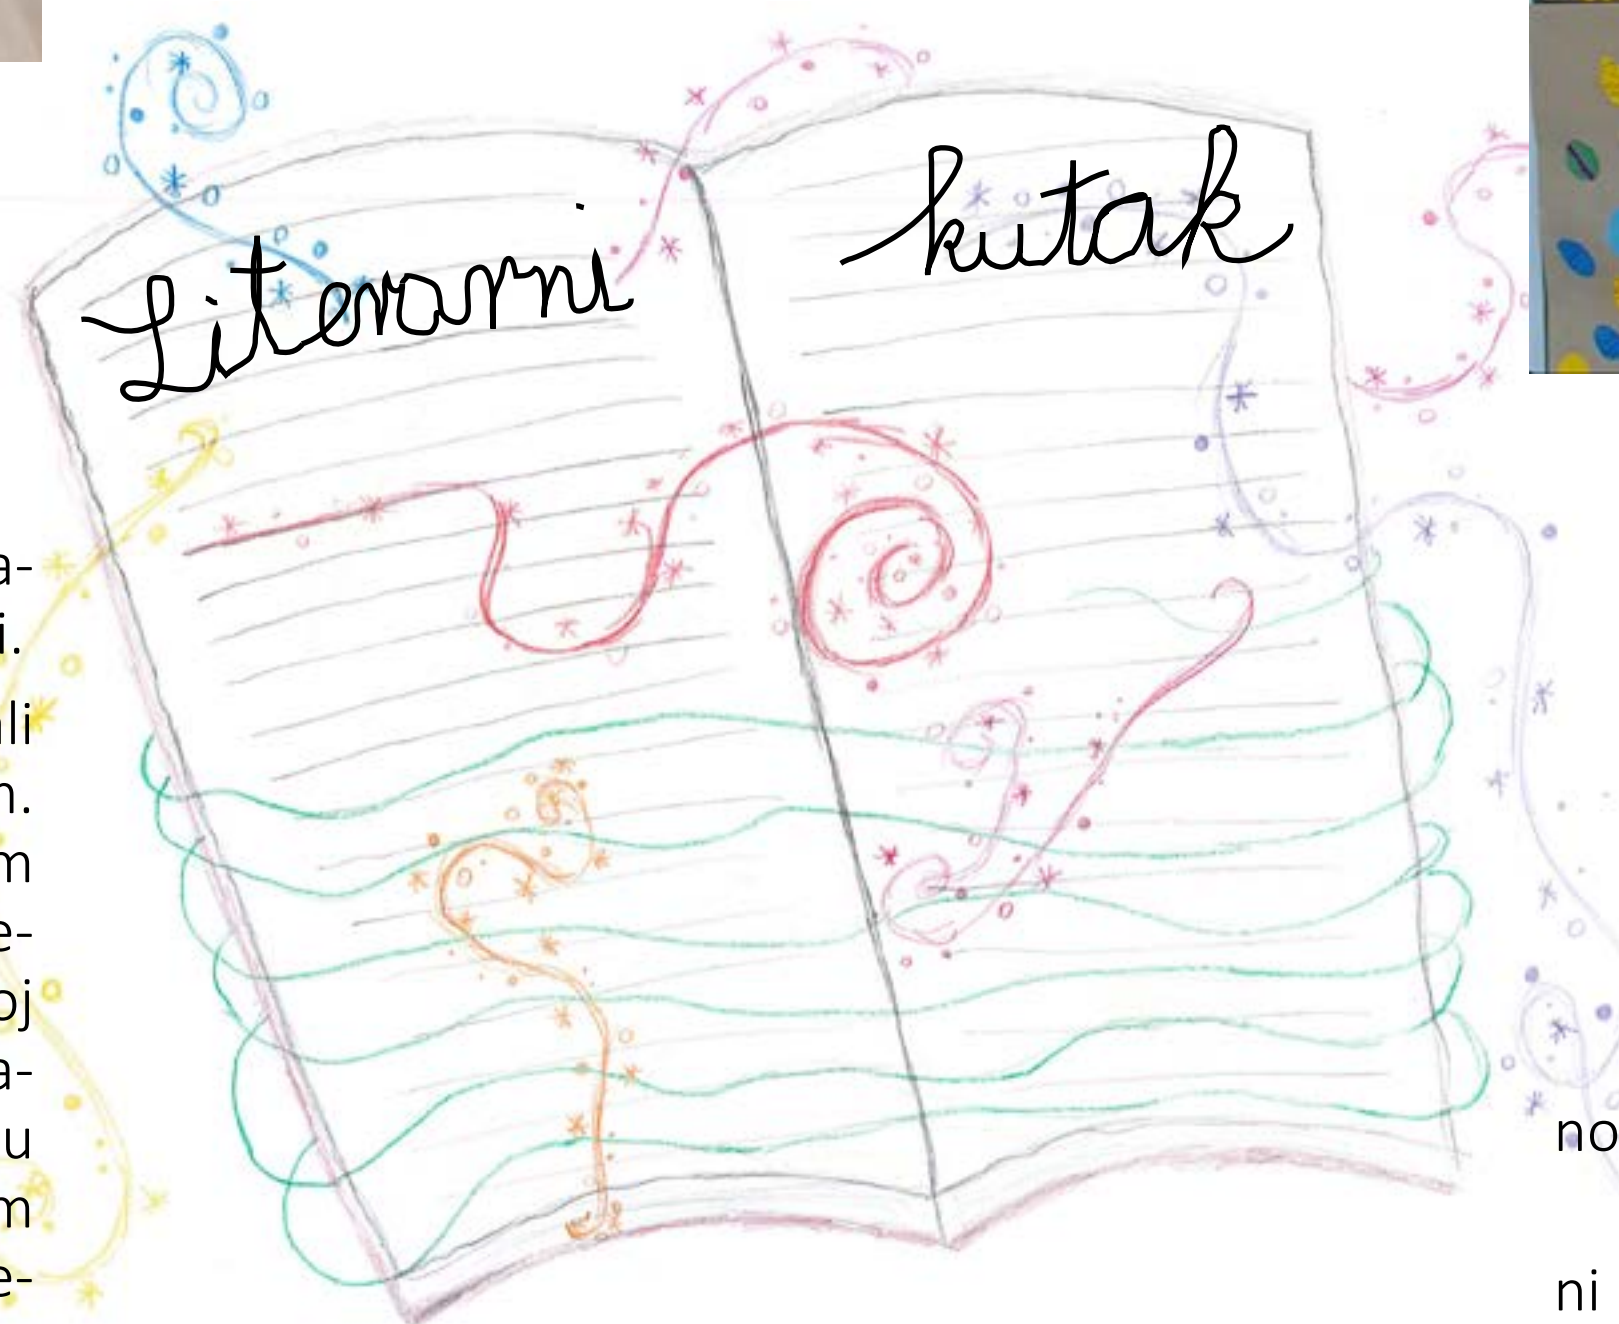 Literarni kutak
a-
i.
li
m
e-
oj
a-
u
m
e-
no
ni